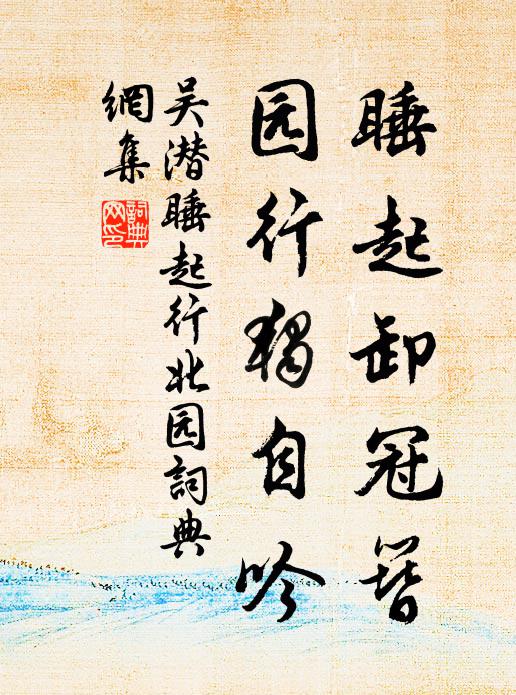 睡起卸冠簪
园行独自吟
吴潜睡起行北园詞典
網集
詞典
网印